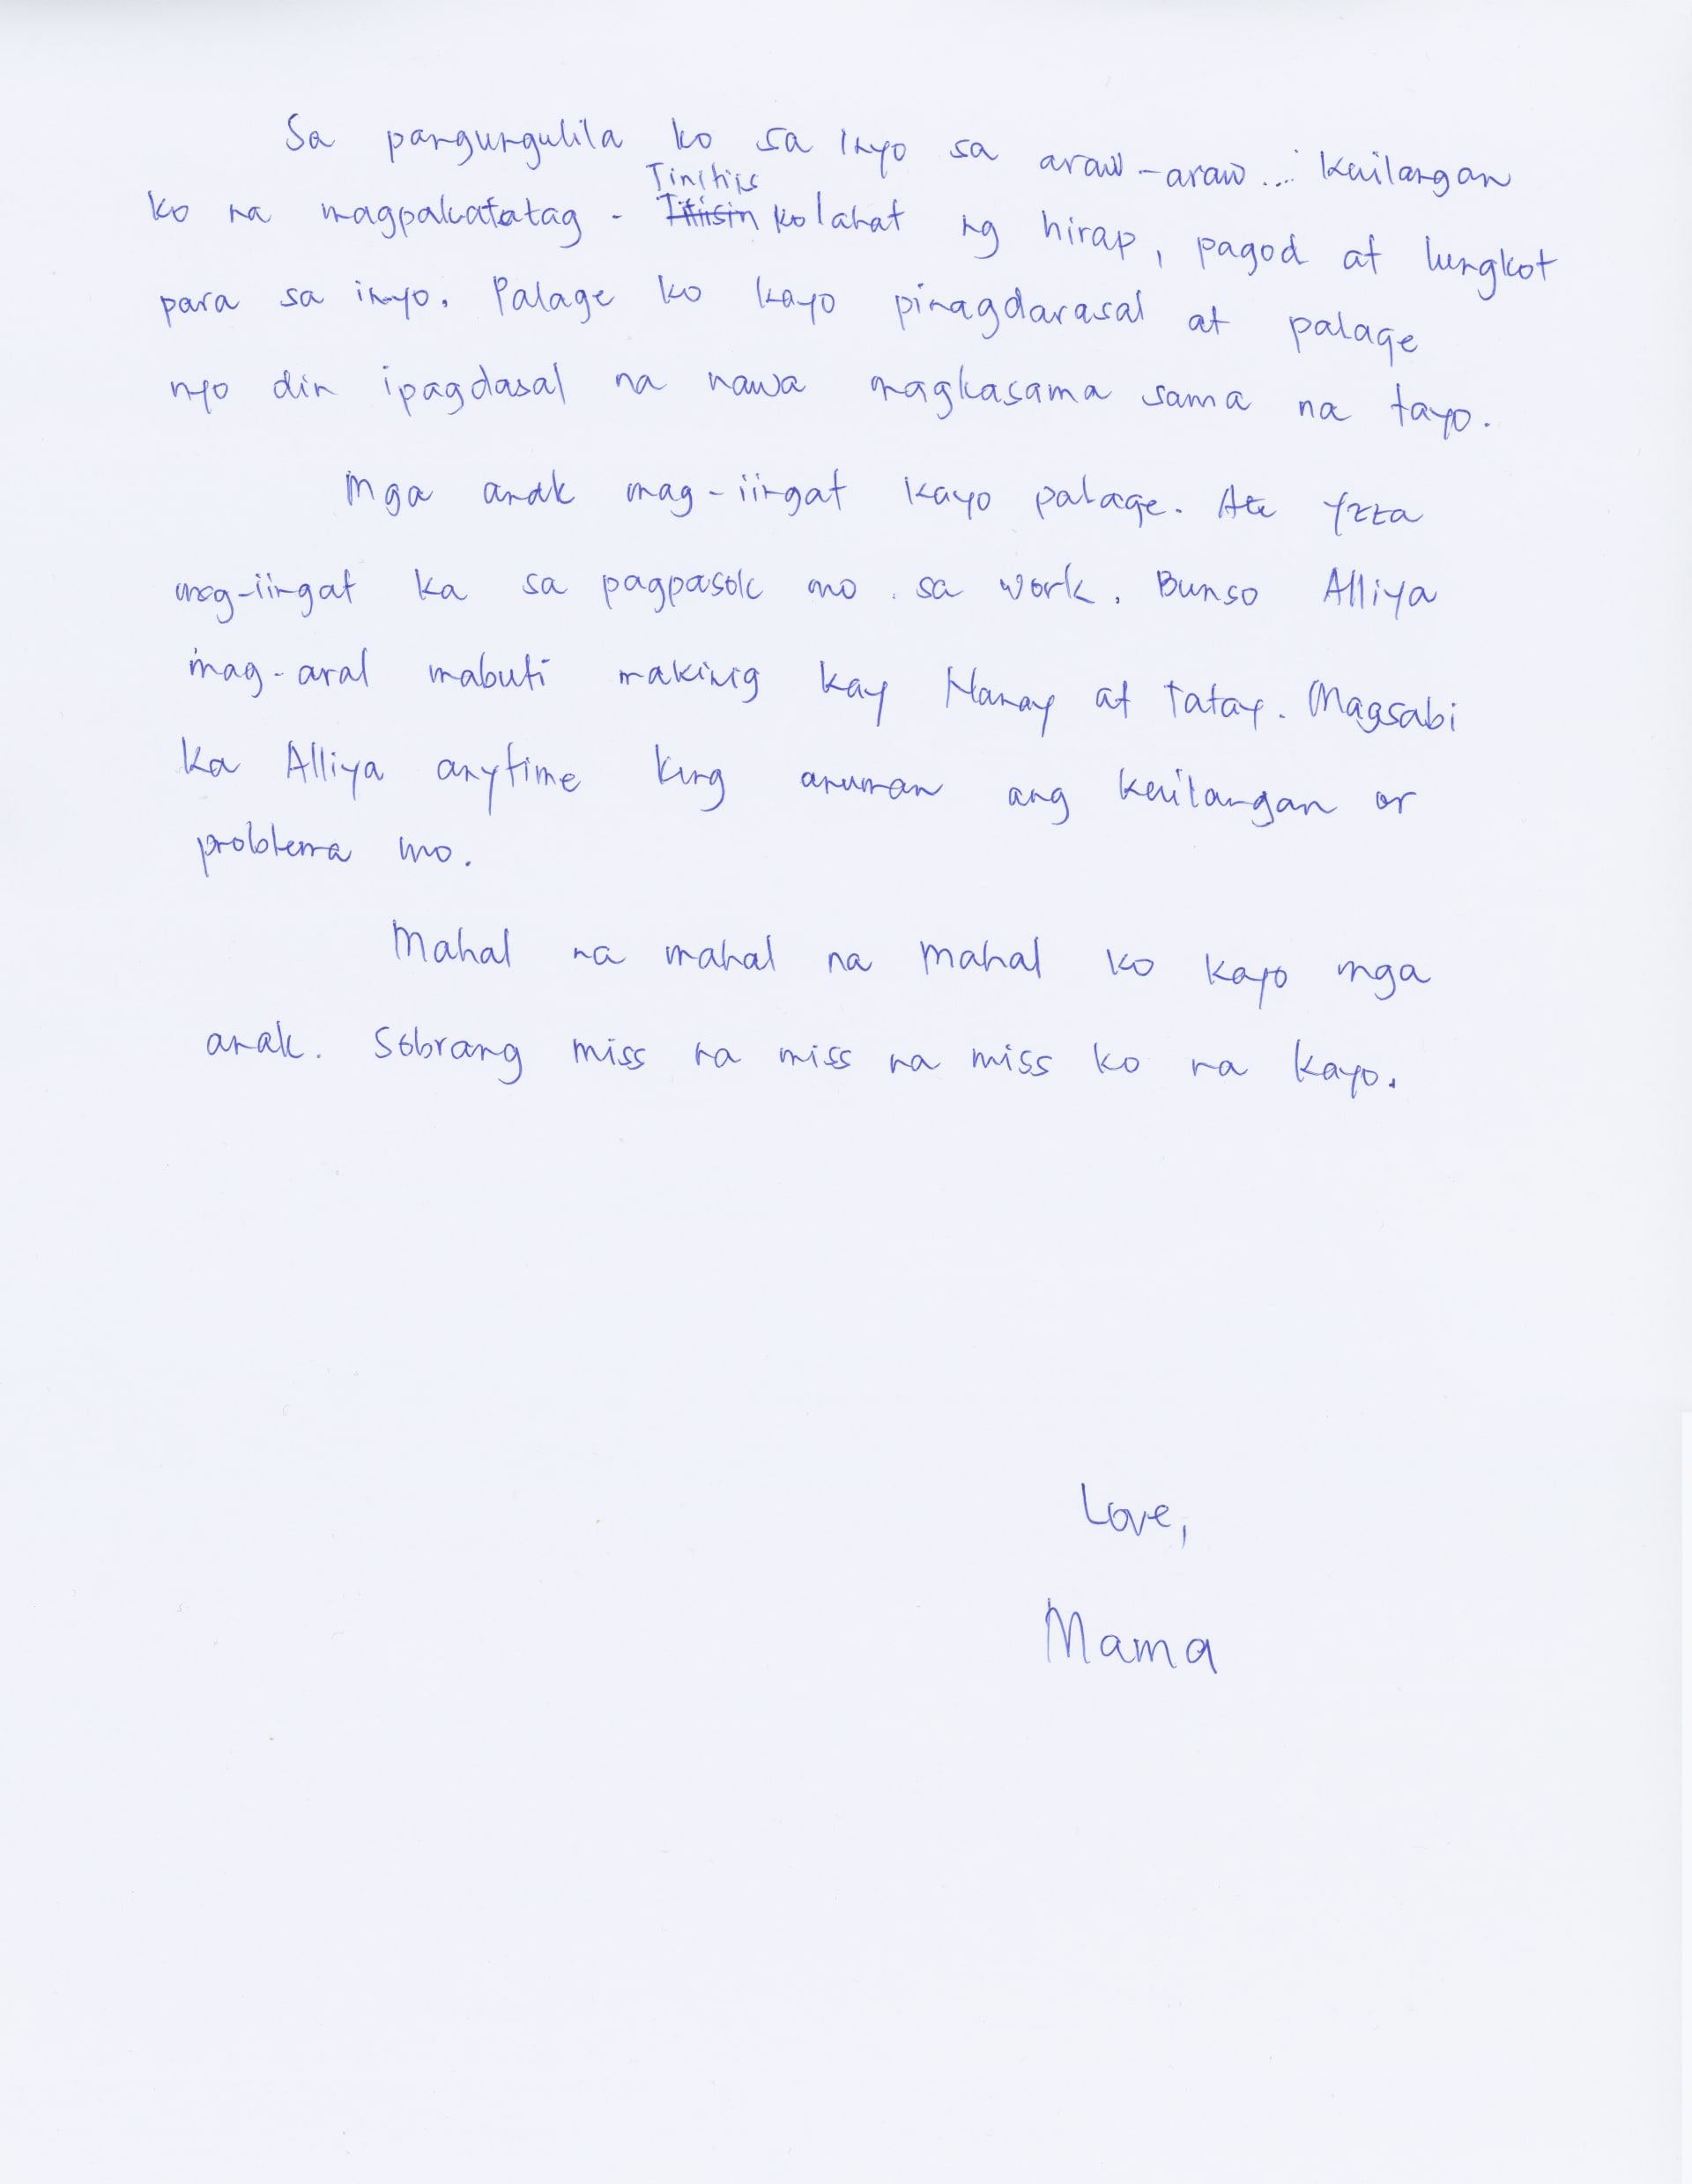 Sa pangungulila ko sa inyo sa araw-araw... kailangan
ko na magpakatatag - Tinitiis ko lahat ng hirap, pagod at lungkot
para sa inyo. Palage ko kayo pinagdarasal at palage
nyo din ipagdasal na nawa magkasama sama na tayo.
Mga anak mag-iingat kayo palage. Ate Yzza
mag-iingat ka sa pagpasok mo sa work. Bunso Alliya
mag-aral mabuti makinig kay Nanay at Tatay. Magsabi
ka Alliya anytime kung anuman ang kailangan or
problema mo.
Mahal na mahal na mahal ko kayo mga
anak. Sobrang miss na miss na miss ko na kayo.
Love,
Mama